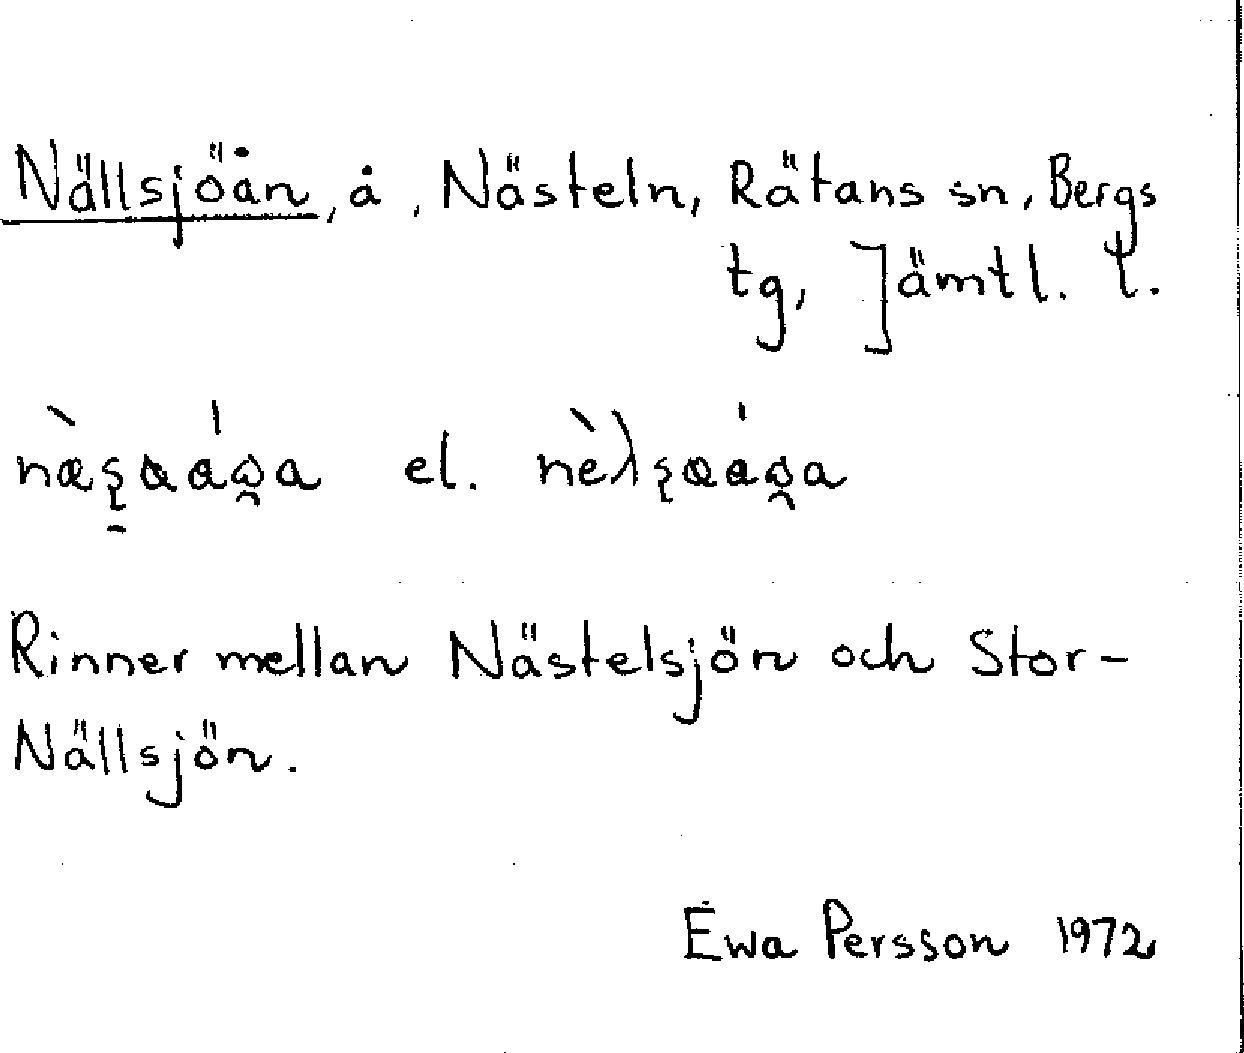 Nällsjöån, å, Nästeln, Rätans sn, Bergs
tg, Jämtl. l.
el.
Rinner mellan Nästelsjön och Stor-
Nällsjön.
Ewa Persson 1972